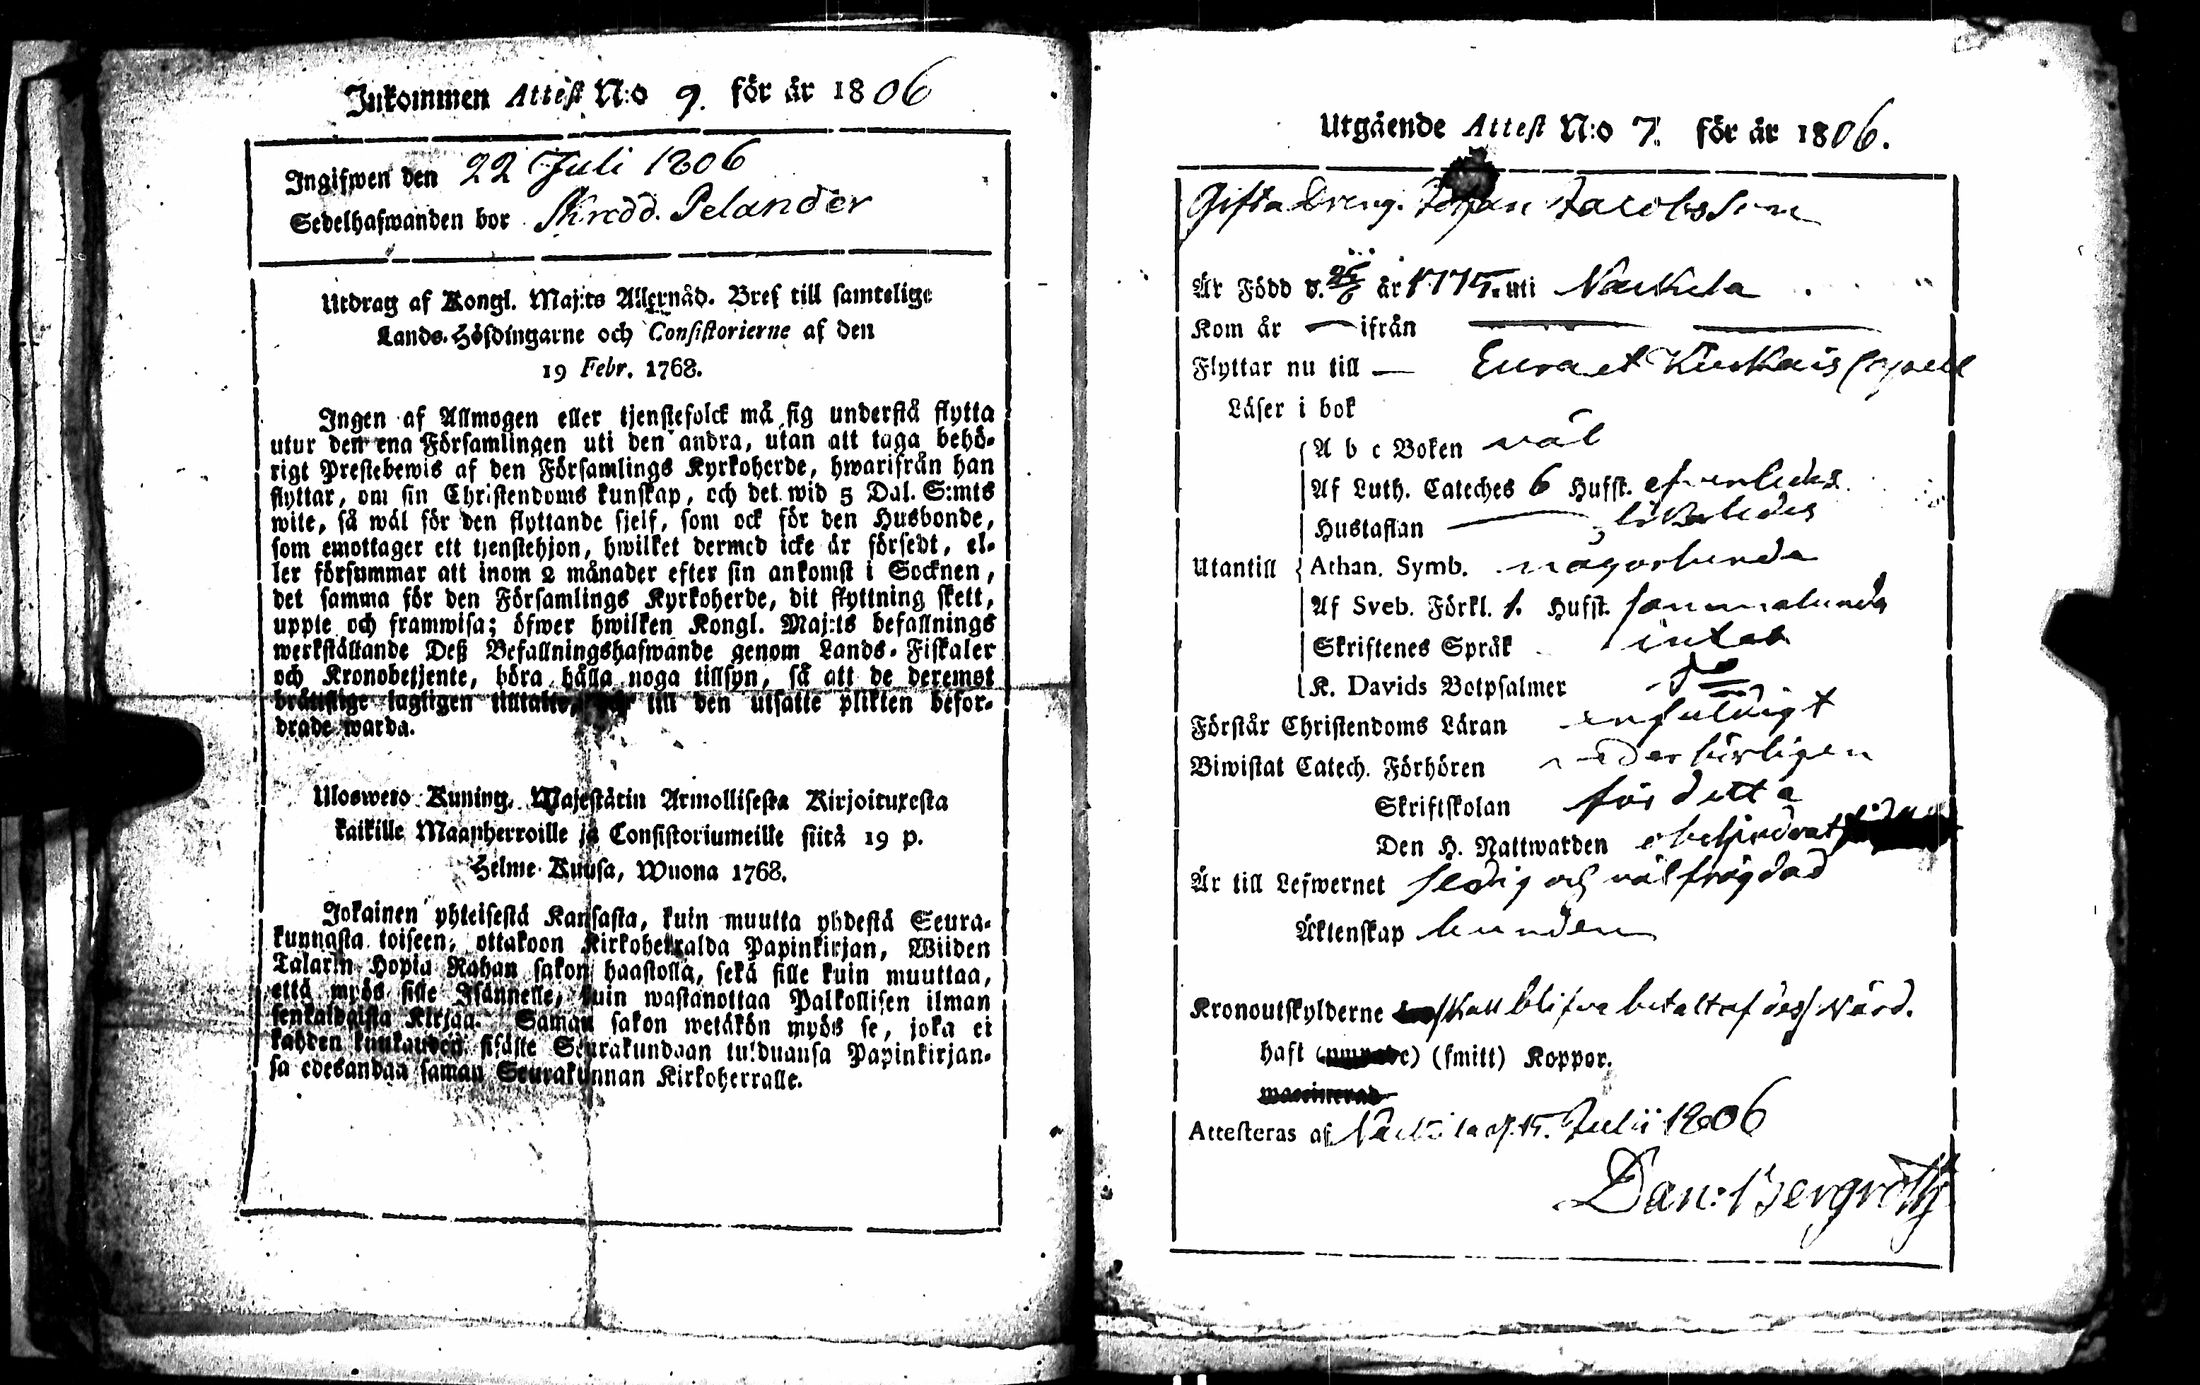 Inkommen Attest N:o 9. för år 1806
Ingifwen den 22 Juli 1806
Sedelhafwanden bor Skredd. Pelander
Utdrag af Kongl. Maj:ts Allernåd. Bref till samtelige
Lands-Höfdingarne och Consistorierne af den
19 Febr. 1768.
Ingen af Allmogen eller tjenstefolck må sig understå flytta
utur den ena Församlingen uti den andra, utan att taga behö-
rigt Prestebewis af den Församlings Kyrkoherde, hwarifrån han
flyttar, om sin Christendoms kunskap, och det wid 5 Dal. S:mts
wite, så wäl för den flyttande sjelf, som ock för den Husbonde,
som emottager ett tjenstehjon, hwilket dermed icke är försedt, el-
ler försummar att inom 2 månader efter sin ankomst i Socknen,
det samma för den Församlings Kyrkoherde, dit flyttning skett,
uppte och framwisa; öfwer hwilken Kongl. Maj:ts befallnings
werkställande Deß Befallningshafwande genom Lands-Fiskaler
och Kronobetjente, böra hålla noga tillsyn, så att de deremot
bråttslige lagligen tilltalte, och till den utsatte plikten befor-
drade warda.
Ulosweto Kuning. Majestätin Armollisesta Kirjoituxesta
kaikille Maanherroille ja Consistoriumeille siitä 19 p.
Helme Kuusa, Wuona 1768.
Jokainen yhteisestä Kansasta, kuin muutta yhdestä Seura-
kunnasta toiseen, ottakoon Kirkoherralda Papinkirjan, Wiiden
Talarin Hopia Rahan sakon haastolla, sekä sille kuin muuttaa,
että myös sille Isännelle, kuin wastanottaa Palkollisen ilman
senkaldaista Kirjaa. Saman sakon wetäkön myös se, joka ei
kahden kuukauden sisälle Seurakundaan tulduansa Papinkirjan-
sa edesandaa saman Seurakunnan Kirkoherralle.
Utgående Attest N:o 7. för år 1806.
Gifta Dreng. Johan Jacobsson
Är Född d. 25/6 år 1775. uti Nackila
Kom år — ifrån —
Flyttar nu till — Eura et Kiukais Capell
Läser i bok
A b c Boken väl
Af Luth. Cateches 6 Hufst. efvenledes
Hustaflan — likaledes
Utantill Athan. Symb. någorlunda
Af Sveb. Förkl. 1. Hufst. sammalunda
Skriftenes Språk intet
K. Davids Botpsalmer do
Förstår Christendoms Läran enfaldigt
Biwistat Catech. Förhören vederbörligen
Skriftskolan för detta
Den H. Nattwarden obehindrat
Är till Lefwernet sedig och välfrägdad
Äktenskap bunden
Kronoutskylderne skall blifva betalt af dess Värd.
haft (smitt) Koppor.
Attesteras af Nackila d. 15. Julii 1806
Dan: Bergroth